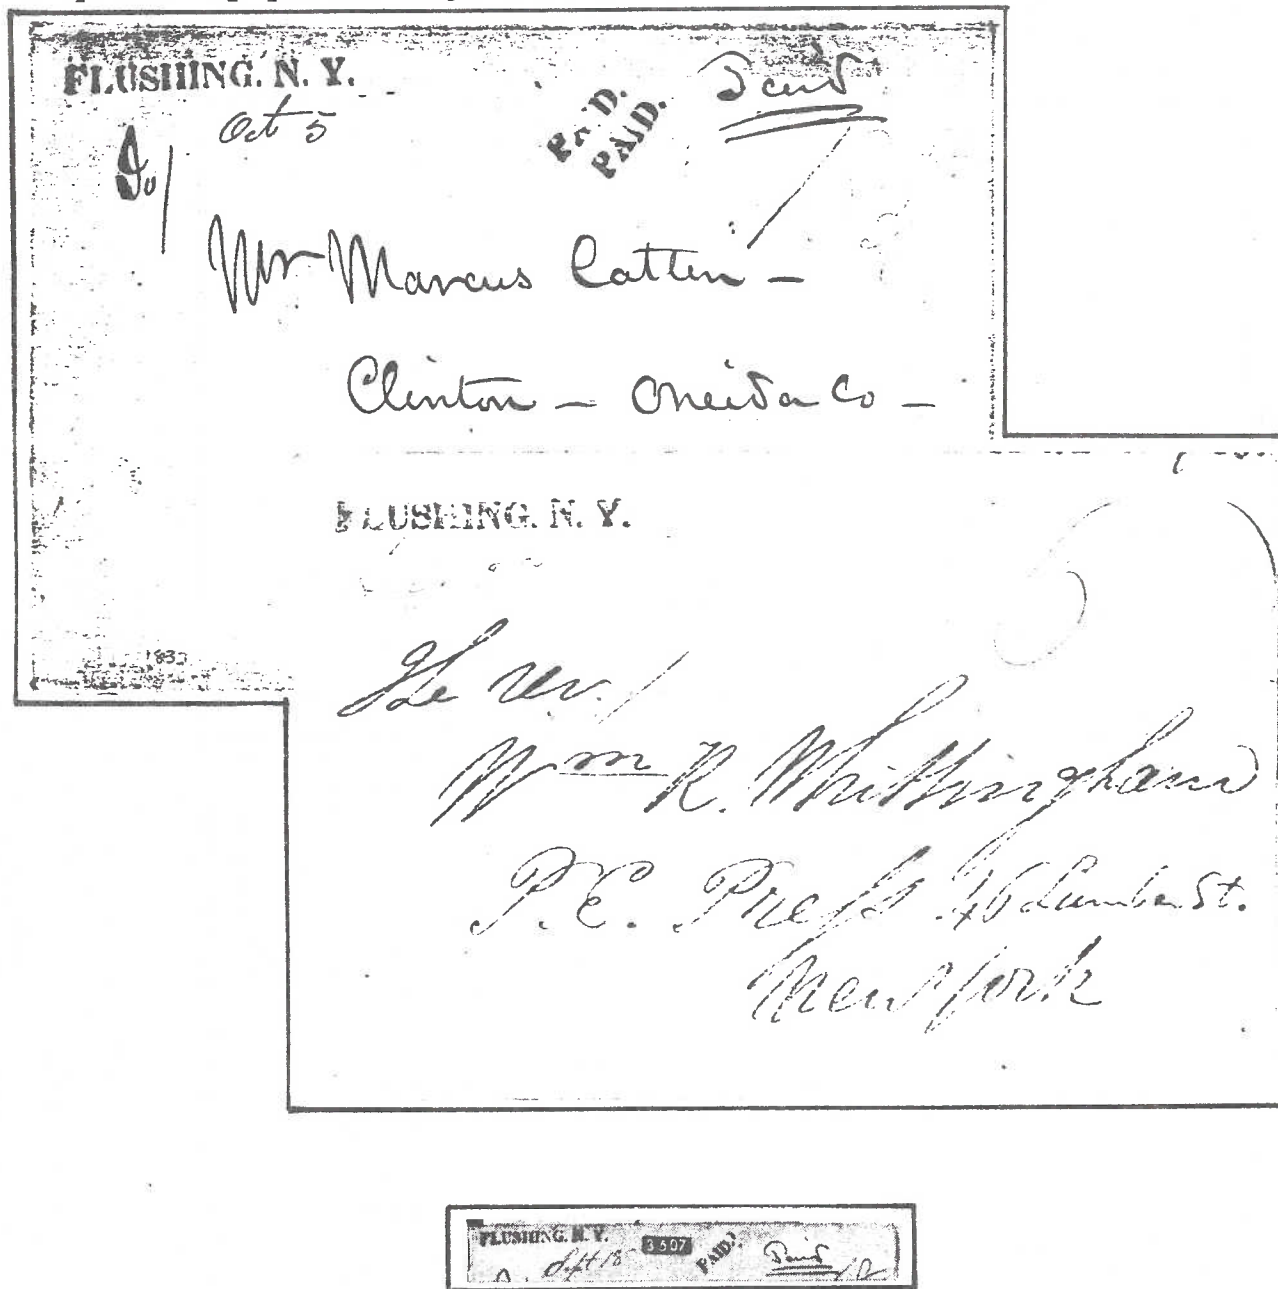 FLUSHING. N. Y.
Oct 5
PAID.
PAID.
Paid
Mr Marcus Catlin –
Clinton – Oneida Co –
FLUSHING. N. Y.
The rev.
Wm R. Whittingham
P. E. Press 46 Lumber St.
New York
FLUSHING. N. Y.
Sept 18
3507
PAID.
Paid
12